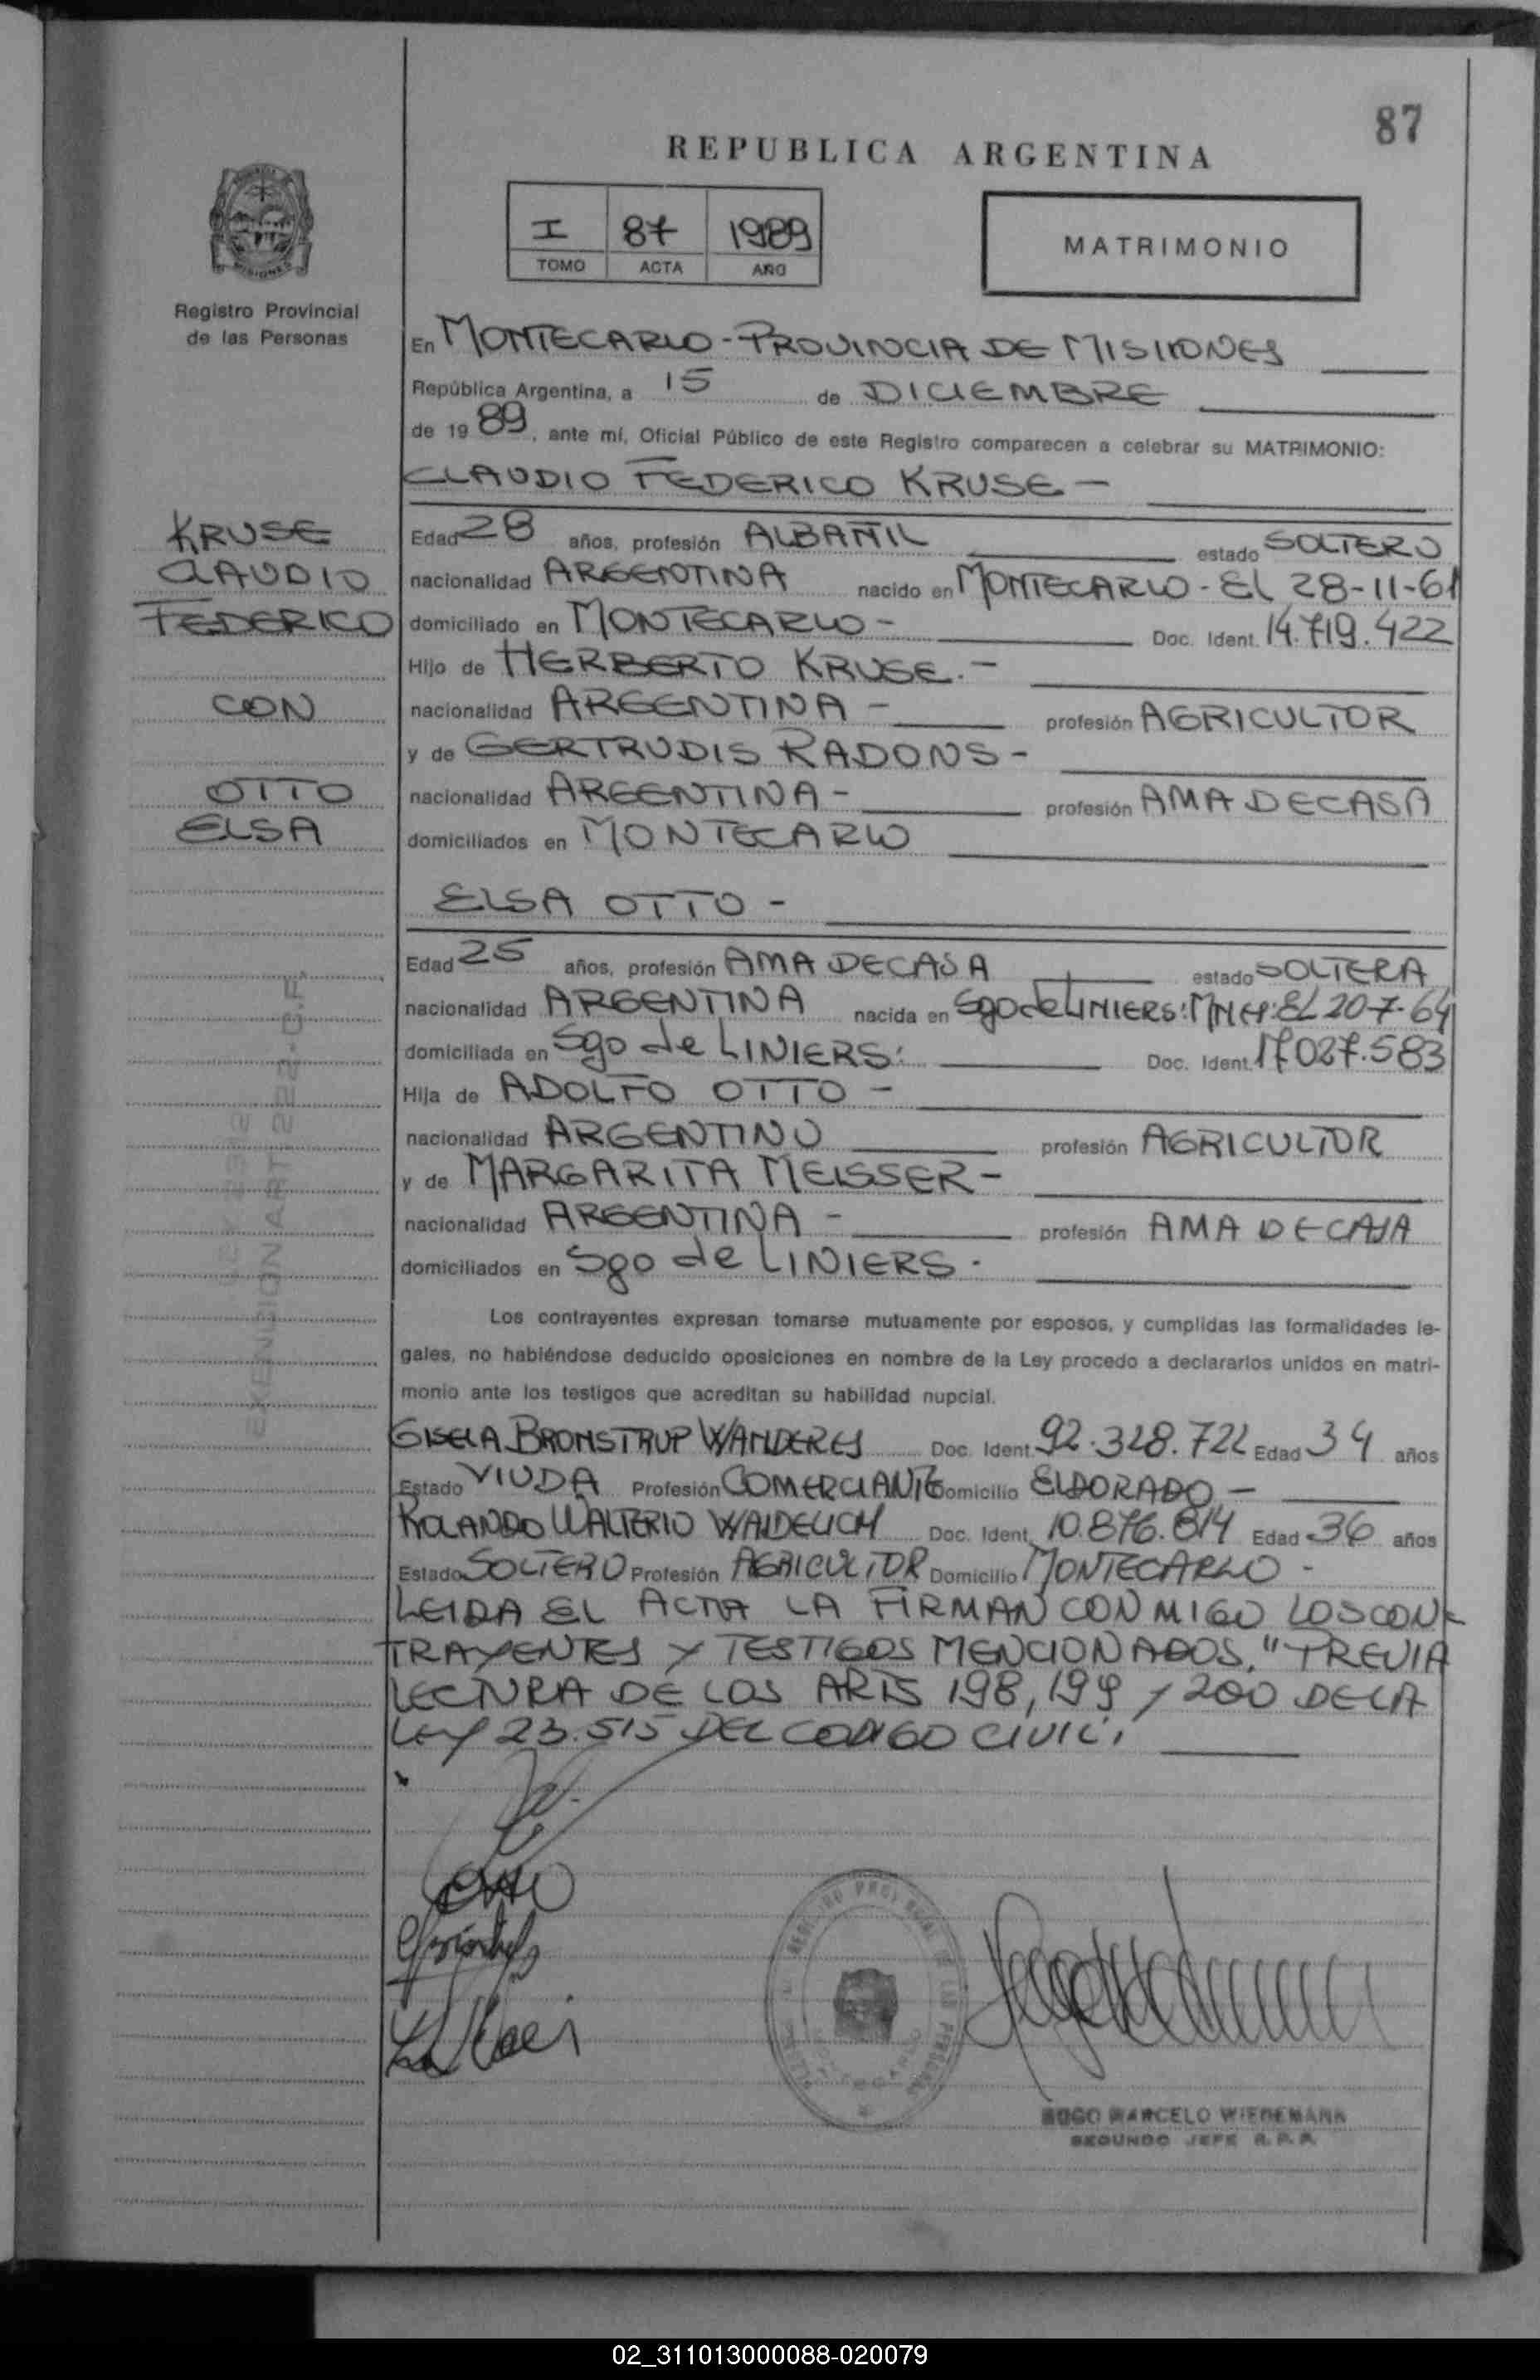 87
REPUBLICA ARGENTINA
I 87 1989
TOMO ACTA AÑO
MATRIMONIO
MISIONES
Registro Provincial
de las Personas
En MONTECARLO - PROVINCIA DE MISIIONES
República Argentina, a 15 de DICIEMBRE
de 19 89, ante mí, Oficial Público de este Registro comparecen a celebrar su MATRIMONIO:
CLAUDIO FEDERICO KRUSE -
KRUSE
CLAUDIO
FEDERICO
CON
OTTO
ELSA
Edad 28 años, profesión ALBAÑIL estado SOLTERO
nacionalidad ARGENTINA nacido en MONTECARLO - EL 28-11-61
domiciliado en MONTECARLO - Doc. Ident. 14.719.422
Hijo de HERBERTO KRUSE. -
nacionalidad ARGENTINA - profesión AGRICULTOR
y de GERTRUDIS RADONS -
nacionalidad ARGENTINA - profesión AMA DE CASA
domiciliados en MONTECARLO
ELSA OTTO -
Edad 25 años, profesión AMA DE CASA estado SOLTERA
nacionalidad ARGENTINA nacida en Sgo de LINIERS: MNES: EL 20-7-64
domiciliada en Sgo de LINIERS: Doc. Ident. 17027.583
Hija de ADOLFO OTTO -
nacionalidad ARGENTINO profesión AGRICULTOR
y de MARGARITA MEISSER -
nacionalidad ARGENTINA - profesión AMA DE CASA
domiciliados en Sgo de LINIERS -
EXENCION ART 222 - C.F.
Los contrayentes expresan tomarse mutuamente por esposos, y cumplidas las formalidades le-
gales, no habiéndose deducido oposiciones en nombre de la Ley procedo a declararlos unidos en matri-
monio ante los testigos que acreditan su habilidad nupcial.
GISELA BRONSTRUP WANDERES Doc. Ident. 92.328.722 Edad 34 años
Estado VIUDA Profesión COMERCIANTE Domicilio ELDORADO -
ROLANDO WALTERIO WAIDELICH Doc. Ident. 10.876.814 Edad 36 años
Estado SOLTERO Profesión AGRICULTOR Domicilio MONTECARLO -
LEIDA EL ACTA LA FIRMAN CONMIGO LOS CON-
TRAYENTES Y TESTIGOS MENCIONADOS. "PREVIA
LECTURA DE LOS ARTS 198, 199 y 200 DE LA
LEY 23.515 DEL CODIGO CIVIL.
HUGO MARCELO WIEDEMANN
SEGUNDO JEFE R. P. P.
02_311013000088-020079